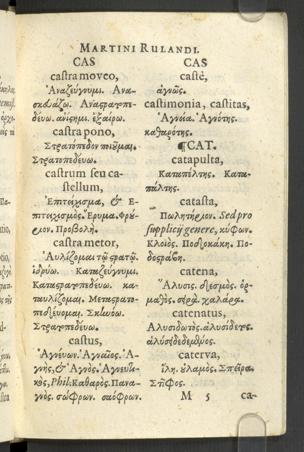 MARTINI RULANDI.
CAS
castra moveo,
Ἀναζεύγνυμι. Ανα-
σκευάζω. Αναστρατοπε-
δεύω. ἀνίστημι. ἐξαίρω.
castra pono,
Στρατόπεδον ποιοῦμαι.
Στρατοπεδεύω.
castrum seu ca-
stellum,
Ἐπιτείχισμα, & Ε-
πιτειχισμός. Ερυμα. Φρού-
ριον. Προβολή.
castra metor,
Αὐλίζομαι τῷ στρατῷ.
ἱδρύω. Καταζεύγνυμι.
Καταστρατοπεδεύω. κα-
ταυλίζομαι. Μεταστρατο-
πεδεύομαι. Σκηνόω.
Στρατοπεδεύω.
castus,
Ἁγνεύων. Ἁγναῖος. Ἁ-
γνής, & Ἁγνός. Ἁγνευτι-
κός, Phil. Καθαρός. Παναγ-
νός. σώφρων. σαόφρων.
CAS
castè,
ἁγνῶς.
castimonia, castitas,
Ἁγνεία. Ἁγνότης.
καθαρότης.
¶CAT.
catapulta,
Καταπέλτης. Κατα-
πάλτης.
catasta,
Πωλητήριον. Sed pro
supplicij genere, κύφων.
Κλοιός. Ποδοκάκη. Πο-
δοστράβη.
catena,
Ἅλυσις. δεσμός. ὁρ-
μαθός. σειρά.
catenatus,
Ἁλυσιδωτός. ἁλυσίδετος.
ἁλυσιδεδεμένος.
caterva,
ἴλη. οὐλαμός. Σπεῖρα.
Στῖφος.
M 5 ca-